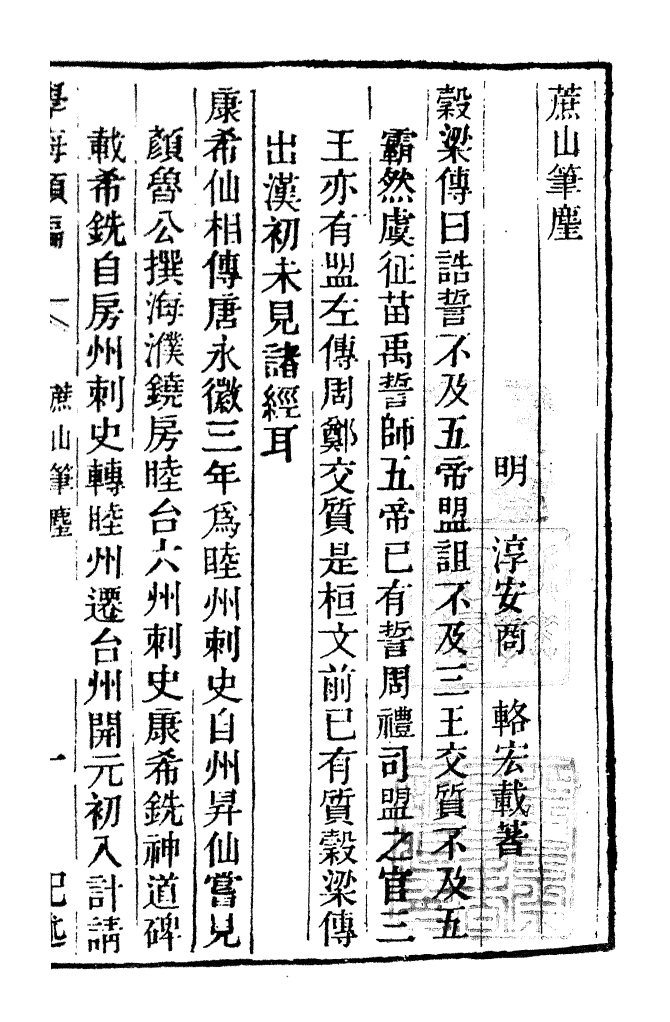 蔗山筆麈
明　淳安商　輅宏載著
穀梁傳曰誥誓不及五帝盟詛不及三王交質不及五
霸然虞征苗禹誓師五帝已有誓周禮司盟之官三
王亦有盟左傳周鄭交質是桓文前已有質穀梁傳
出漢初未見諸經耳
康希仙相傳唐永徽三年爲睦州刺史自州昇仙嘗見
顏魯公撰海濮鐃房睦台六州刺史康希銑神道碑
載希銑自房州刺史轉睦州遷台州開元初入計請
學海類編　蔗山筆麈　一　記述